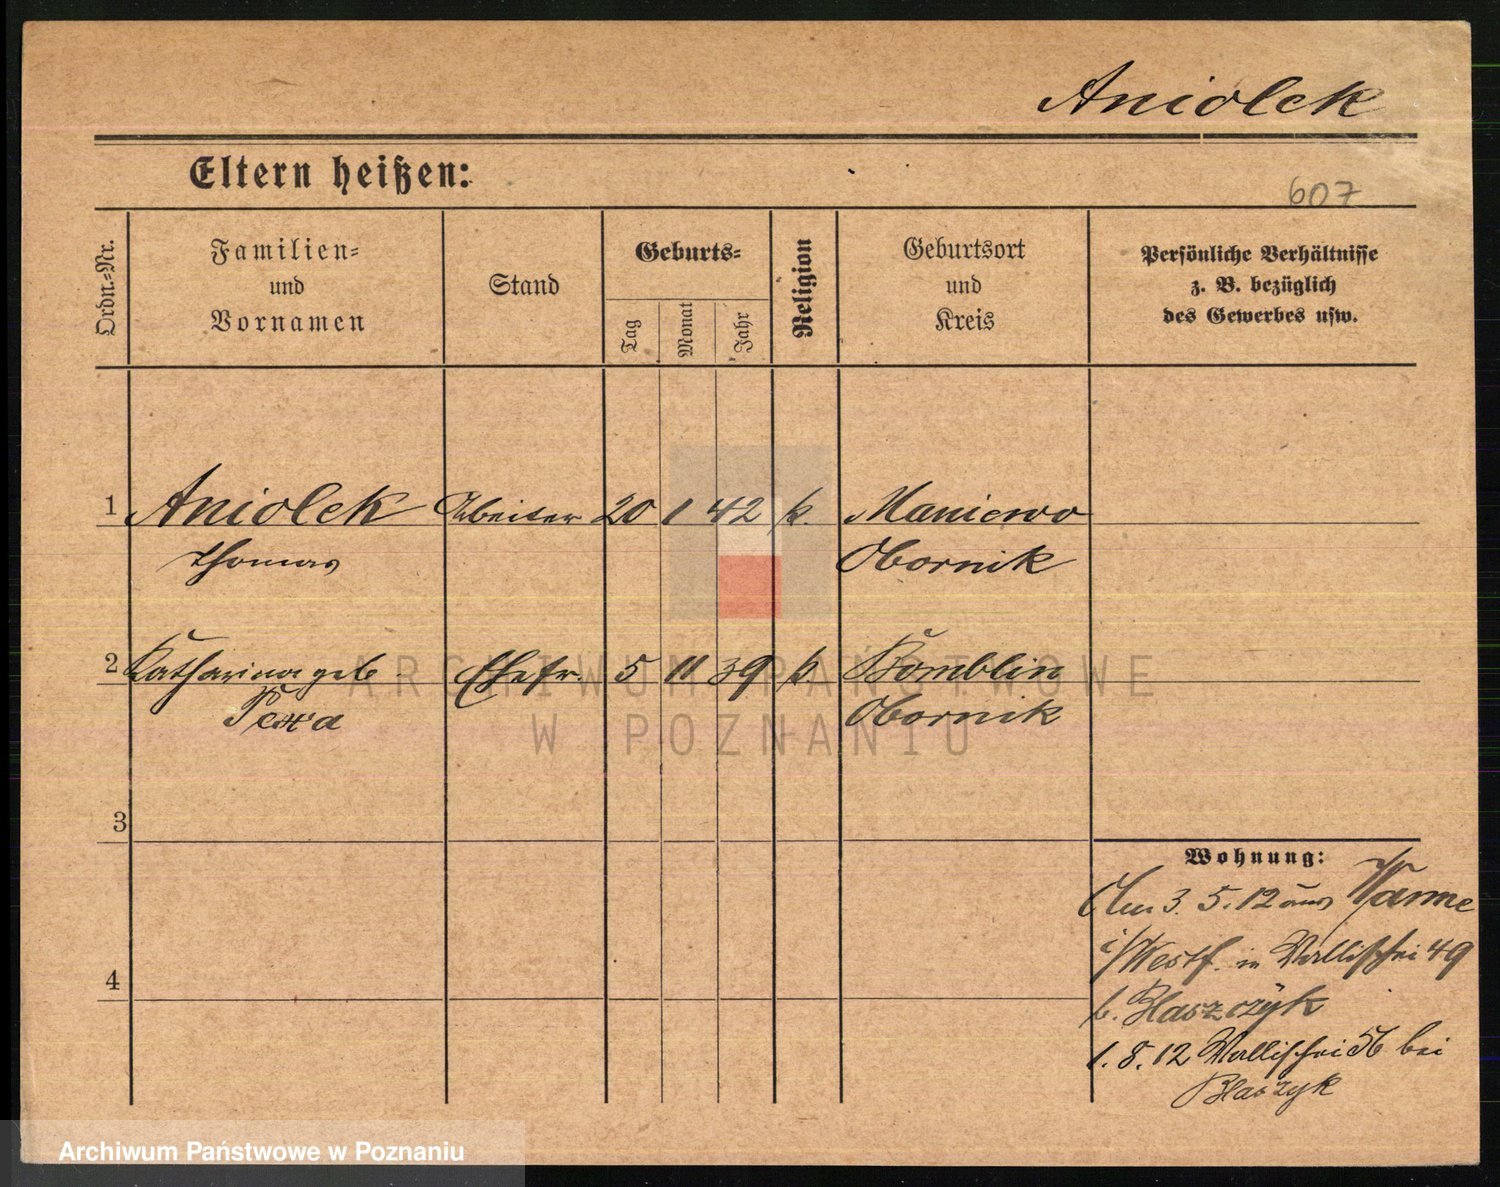 Aniolek
Eltern heißen:
607
Ordn.-Nr.
Familien-
und
Vornamen
Stand
Geburts-
Tag
Monat
Jahr
Religion
Geburtsort
und
Kreis
Persönliche Verhältnisse
z. B. bezüglich
des Gewerbes usw.
1 Aniolek Arbeiter 20 1 42 k. Maniewo
Thomas Obornik
2 Katharina geb Ehefr. 5 11 39 k. Bomblin
Obornik
3
4
Wohnung:
Am 3. 5. 12 aus
i/Westf. in Wallischei 49
b. Blaszczyk
1. 8. 12 Wallischei 56 bei
Blaszyk
ARCHIWUM PAŃSTWOWE
W POZNANIU
Archiwum Państwowe w Poznaniu